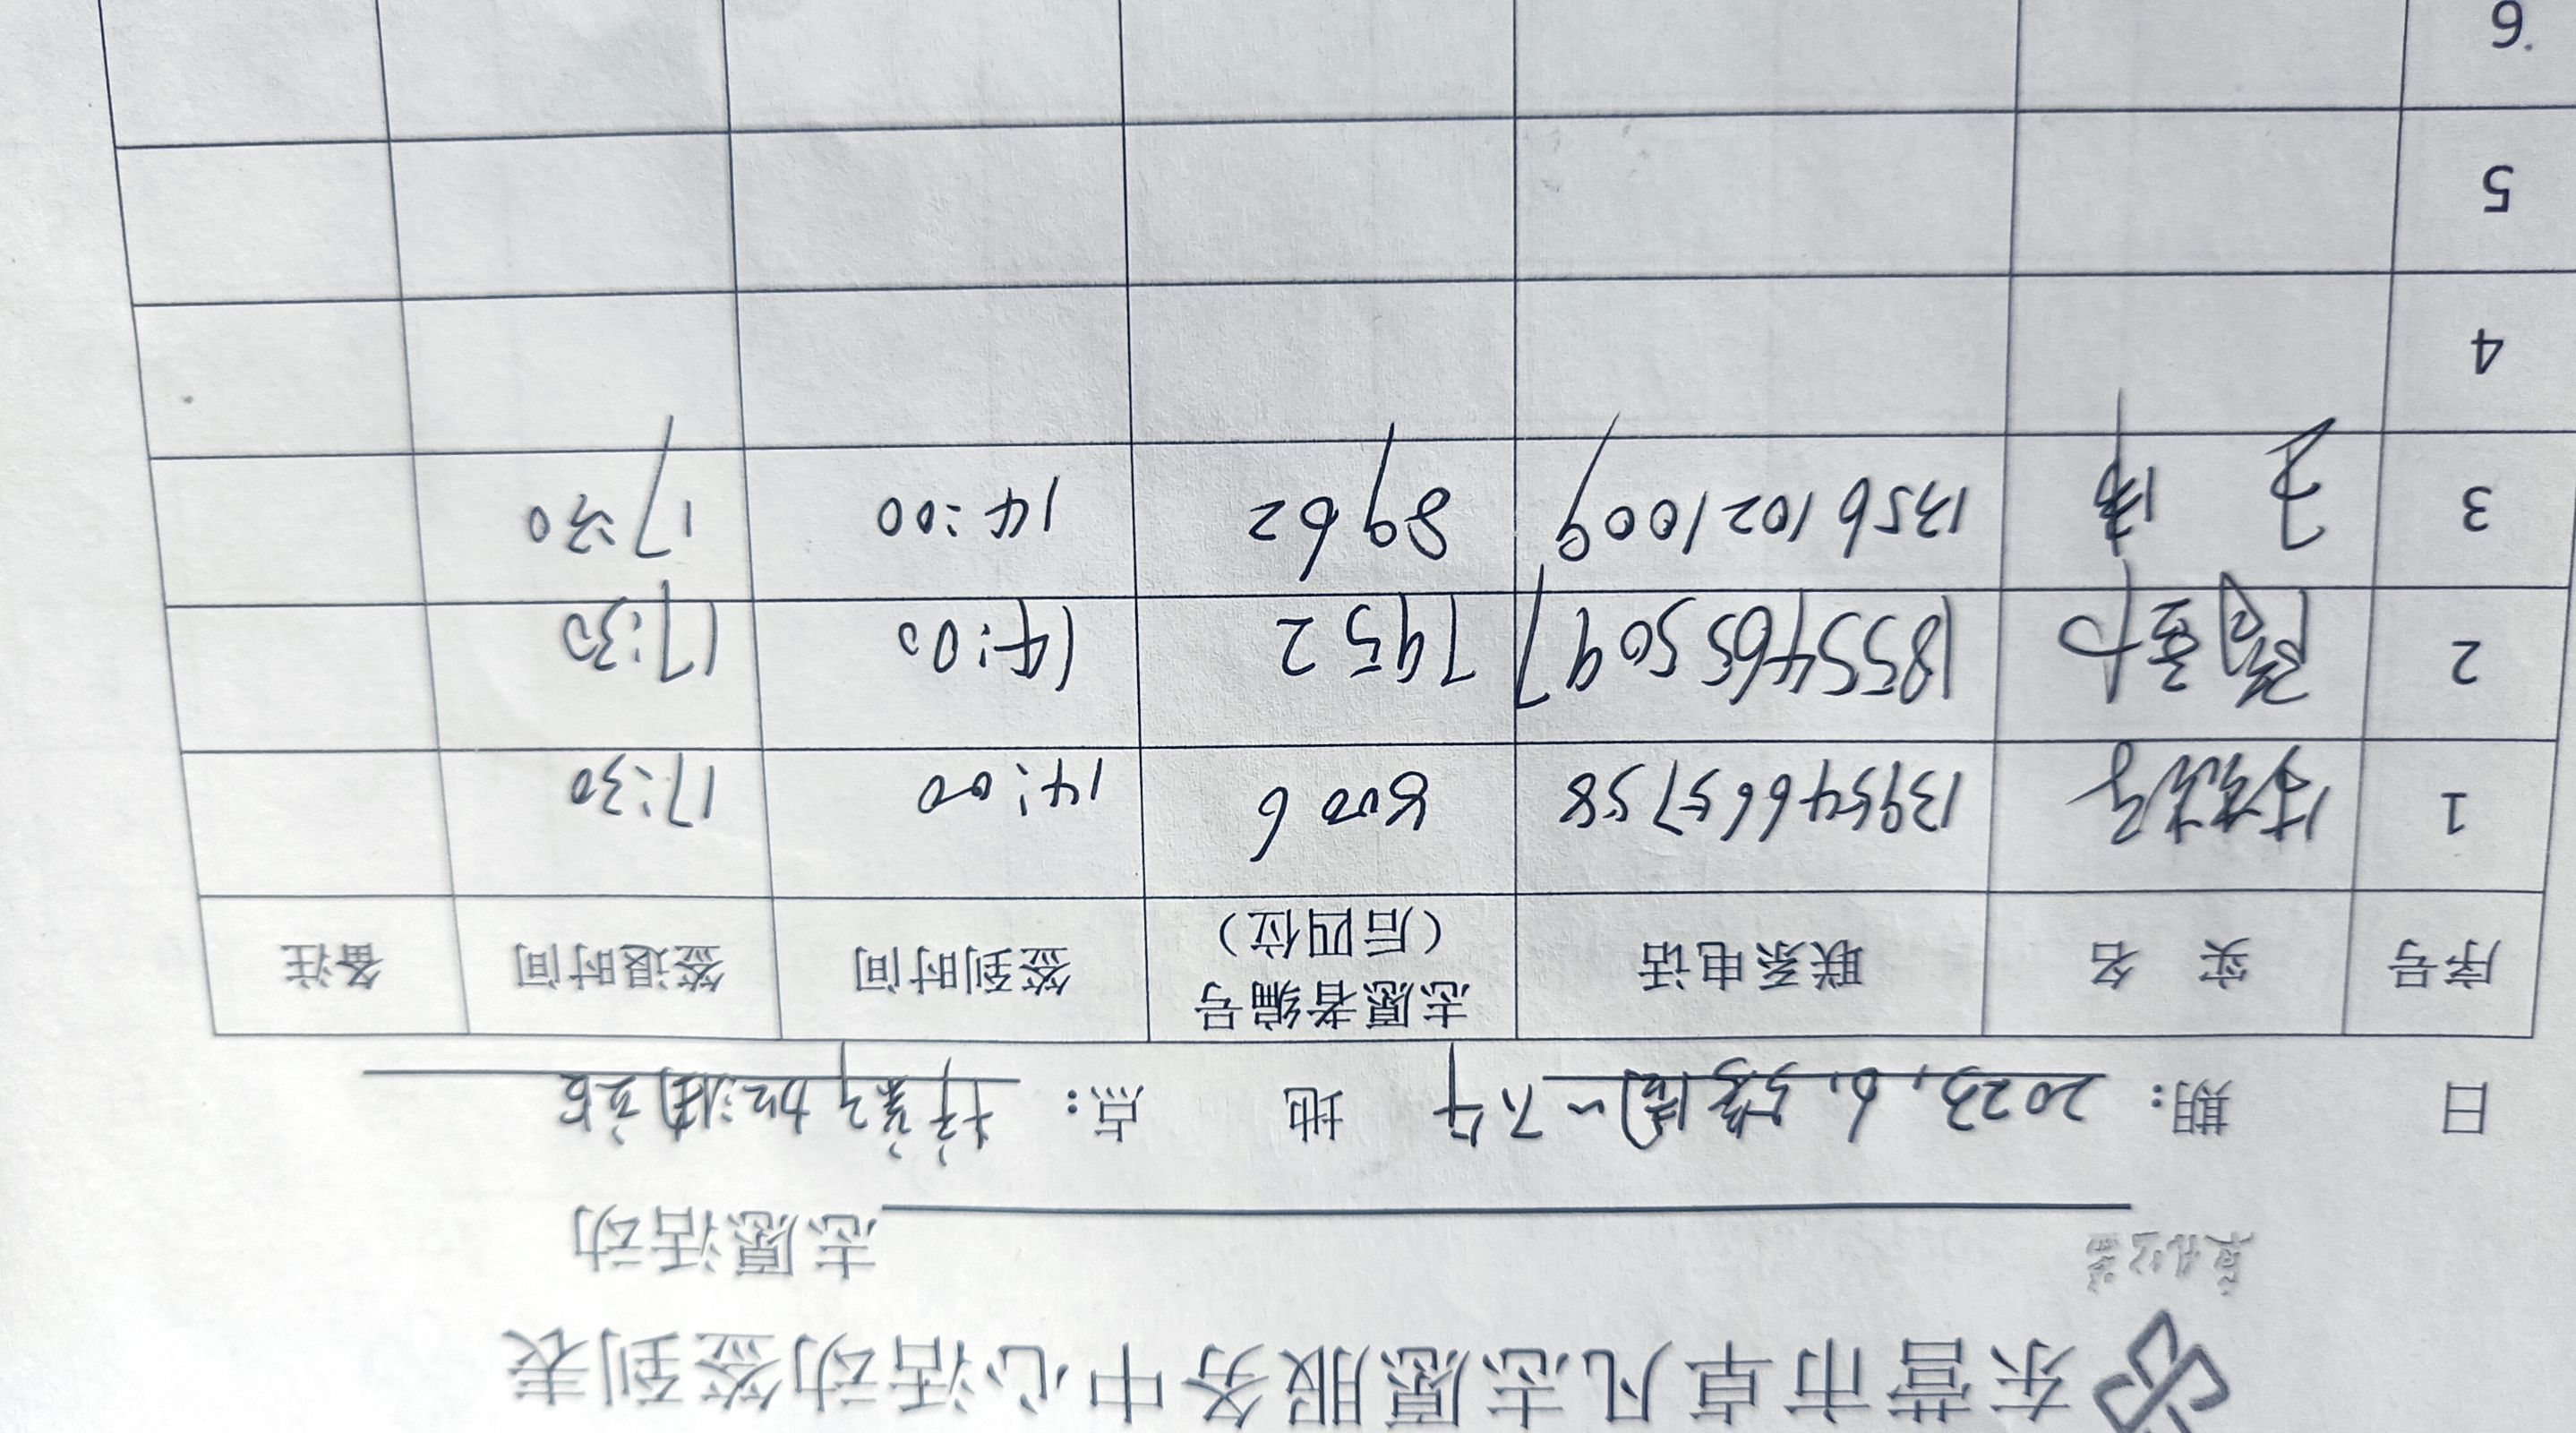 东营市卓凡志愿服务中心活动签到表
志愿活动
日期： 2023.6. 下午 地点： 加油站
序号 实名 联系电话 志愿者编号（后四位） 签到时间 签退时间 备注
1 13954665758 8006 14:00 17:30
2 18554655097 7952 14:00 17:30
3 王 13561021009 8962 14:00 17:30
4
5
6